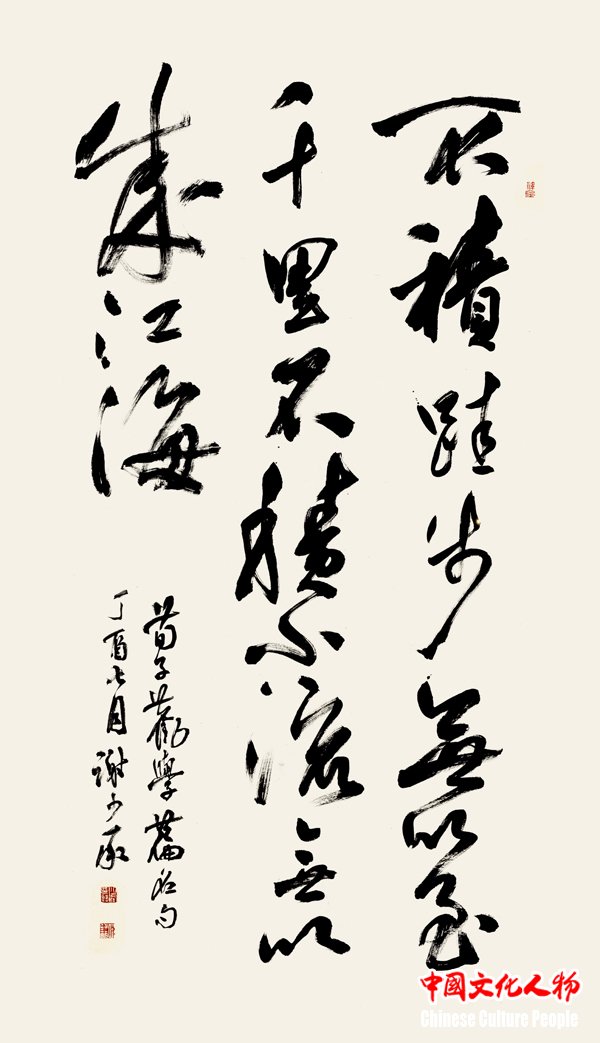 不積跬步無以至
千里不積小流無以
成江海
荀子勸學篇名句
丁酉七月謝少承
中國文化人物
Chinese Culture People